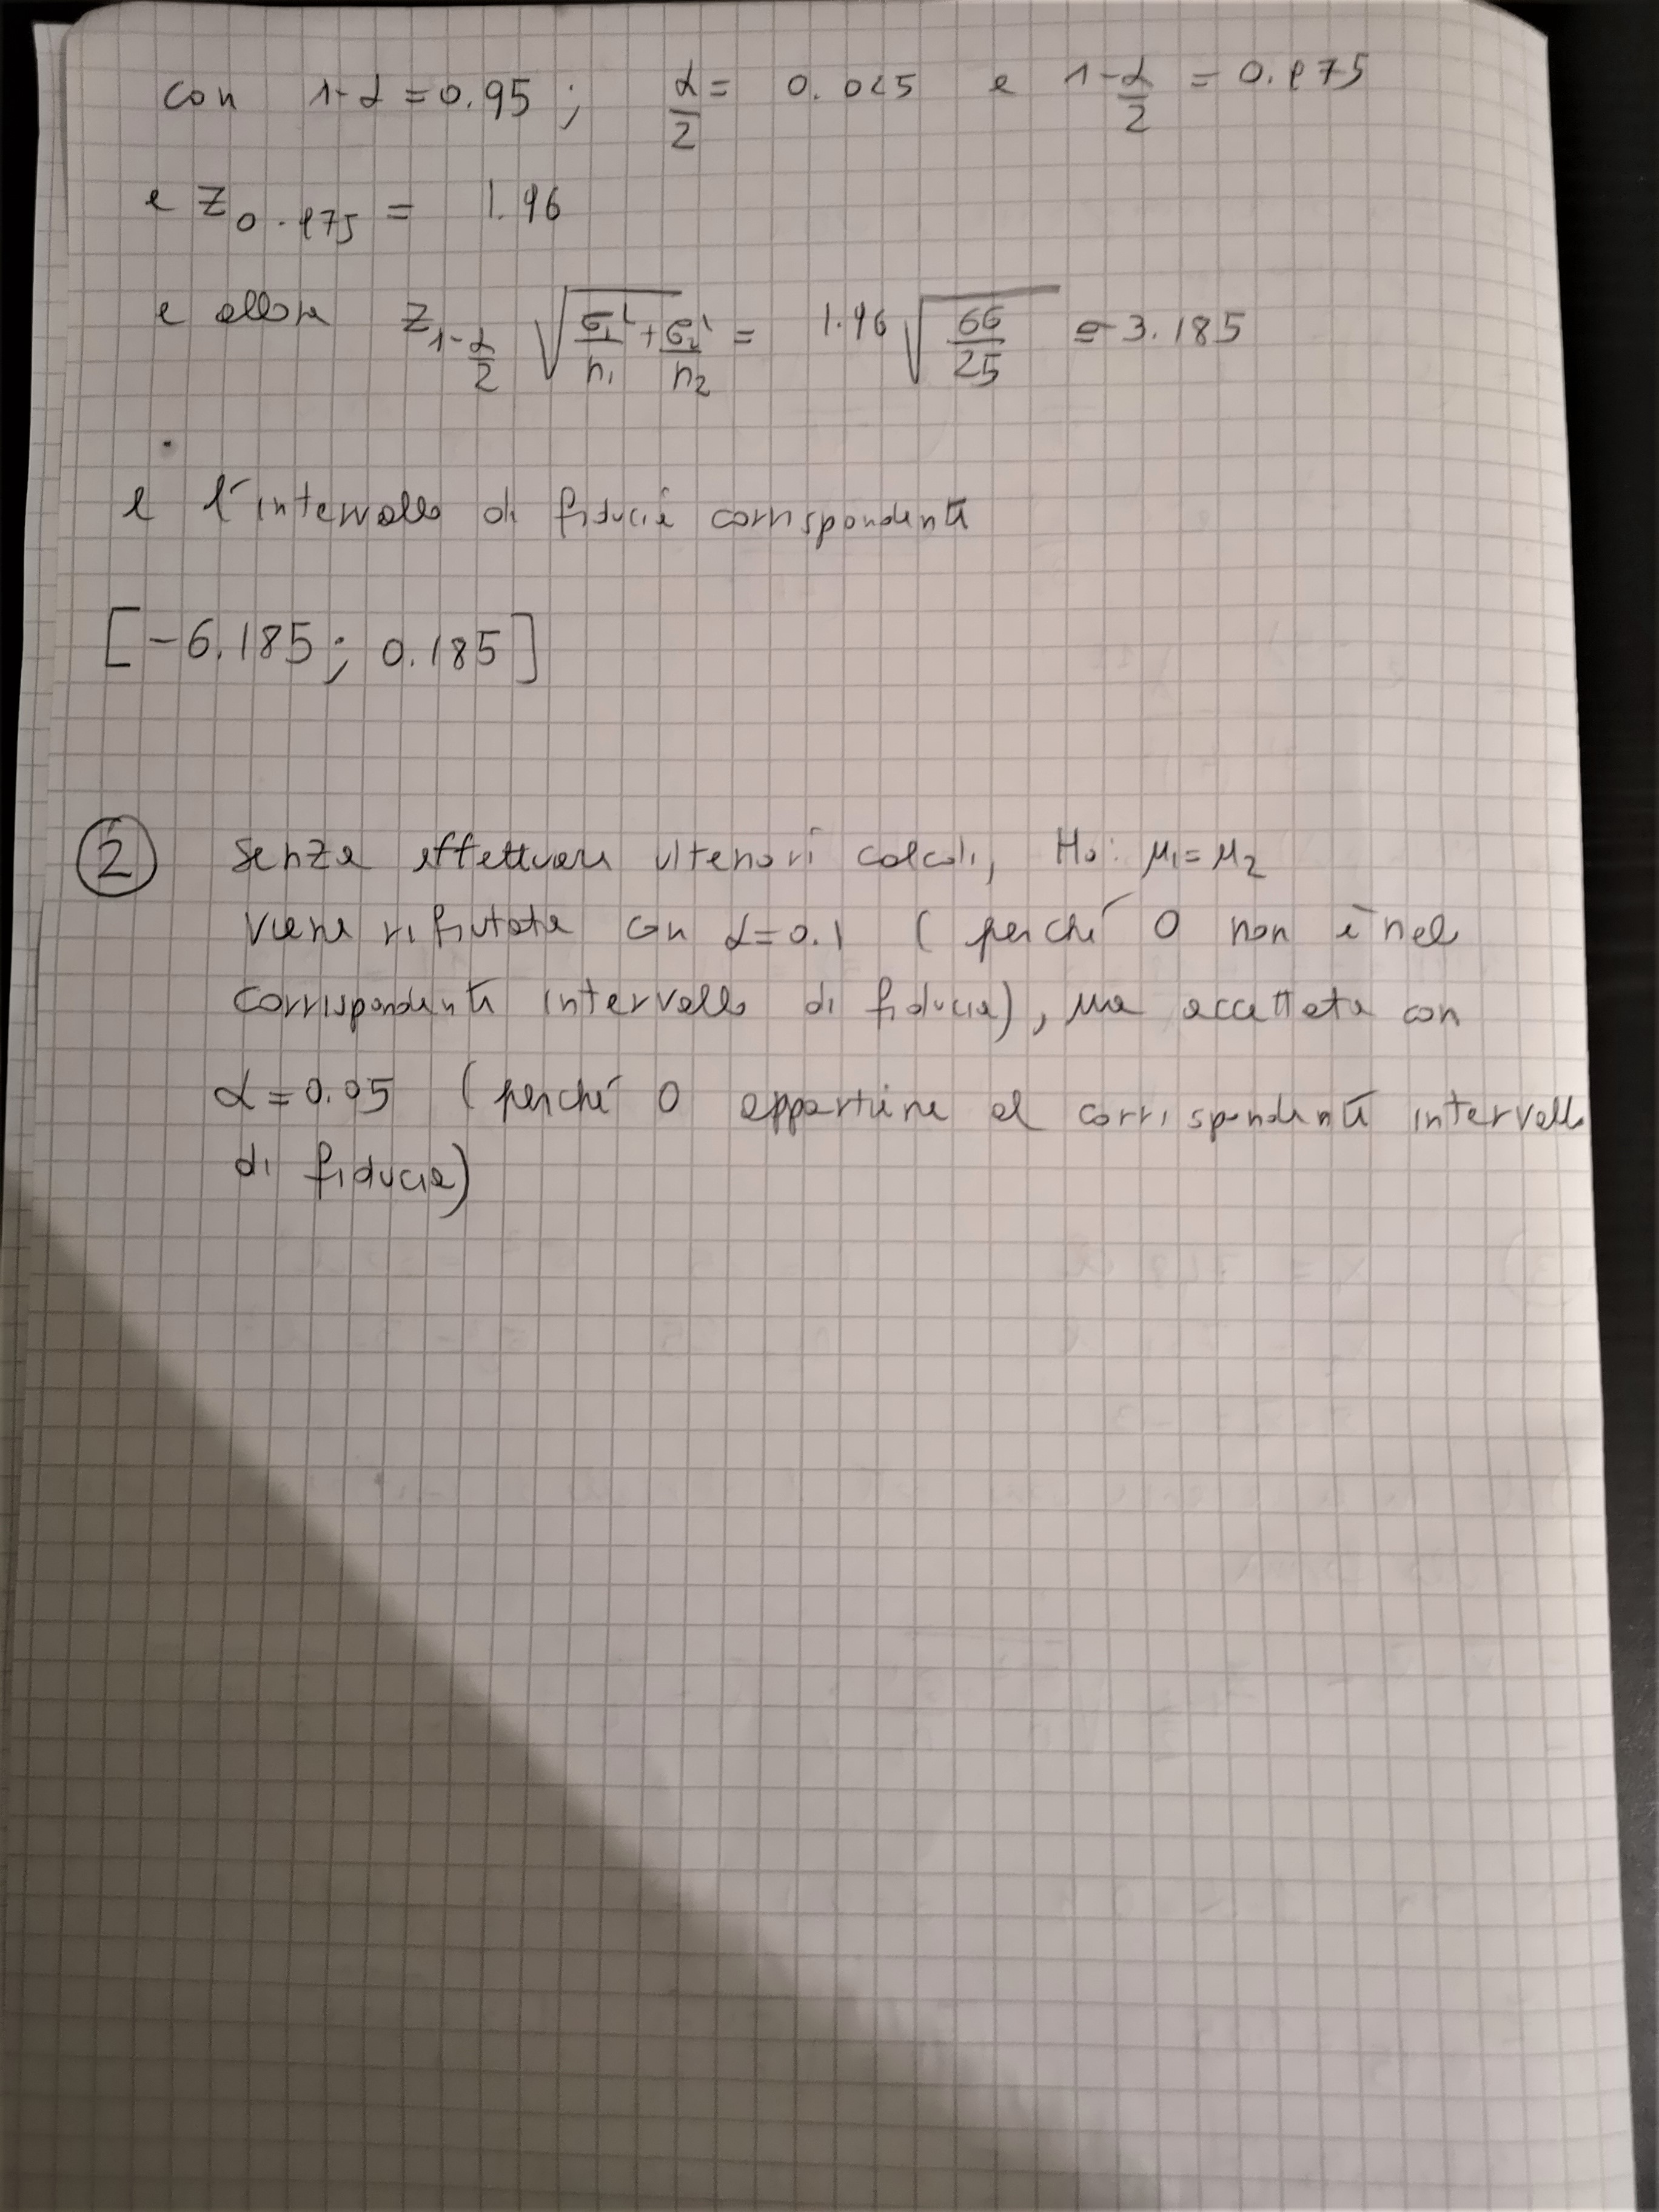 con 1-α = 0.95 ; α/2 = 0.025 e 1-α/2 = 0.975
e z_{0.975} = 1.96
e allora z_{1-α/2} √(σ₁²/n₁ + σ₂²/n₂) = 1.96 √(66/25) = 3.185
e l'intervallo di fiducia corrispondente
[-6.185; 0.185]
② Senza effettuare ulteriori calcoli, H₀: μ₁=μ₂
viene rifiutata con α=0.1 ( perché 0 non è nel
corrispondente intervallo di fiducia), ma accettata con
α=0.05 (perché 0 appartiene al corrispondente intervallo
di fiducia)